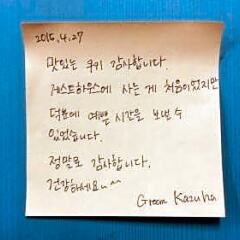 2016.4.27
맛있는 쿠키 감사합니다.
게스트하우스에 사는 게 처음이었지만
덕분에 예쁜 시간을 보낼 수
있었습니다.
정말로 감사합니다.
건강하세요~^^
Green Kazuha